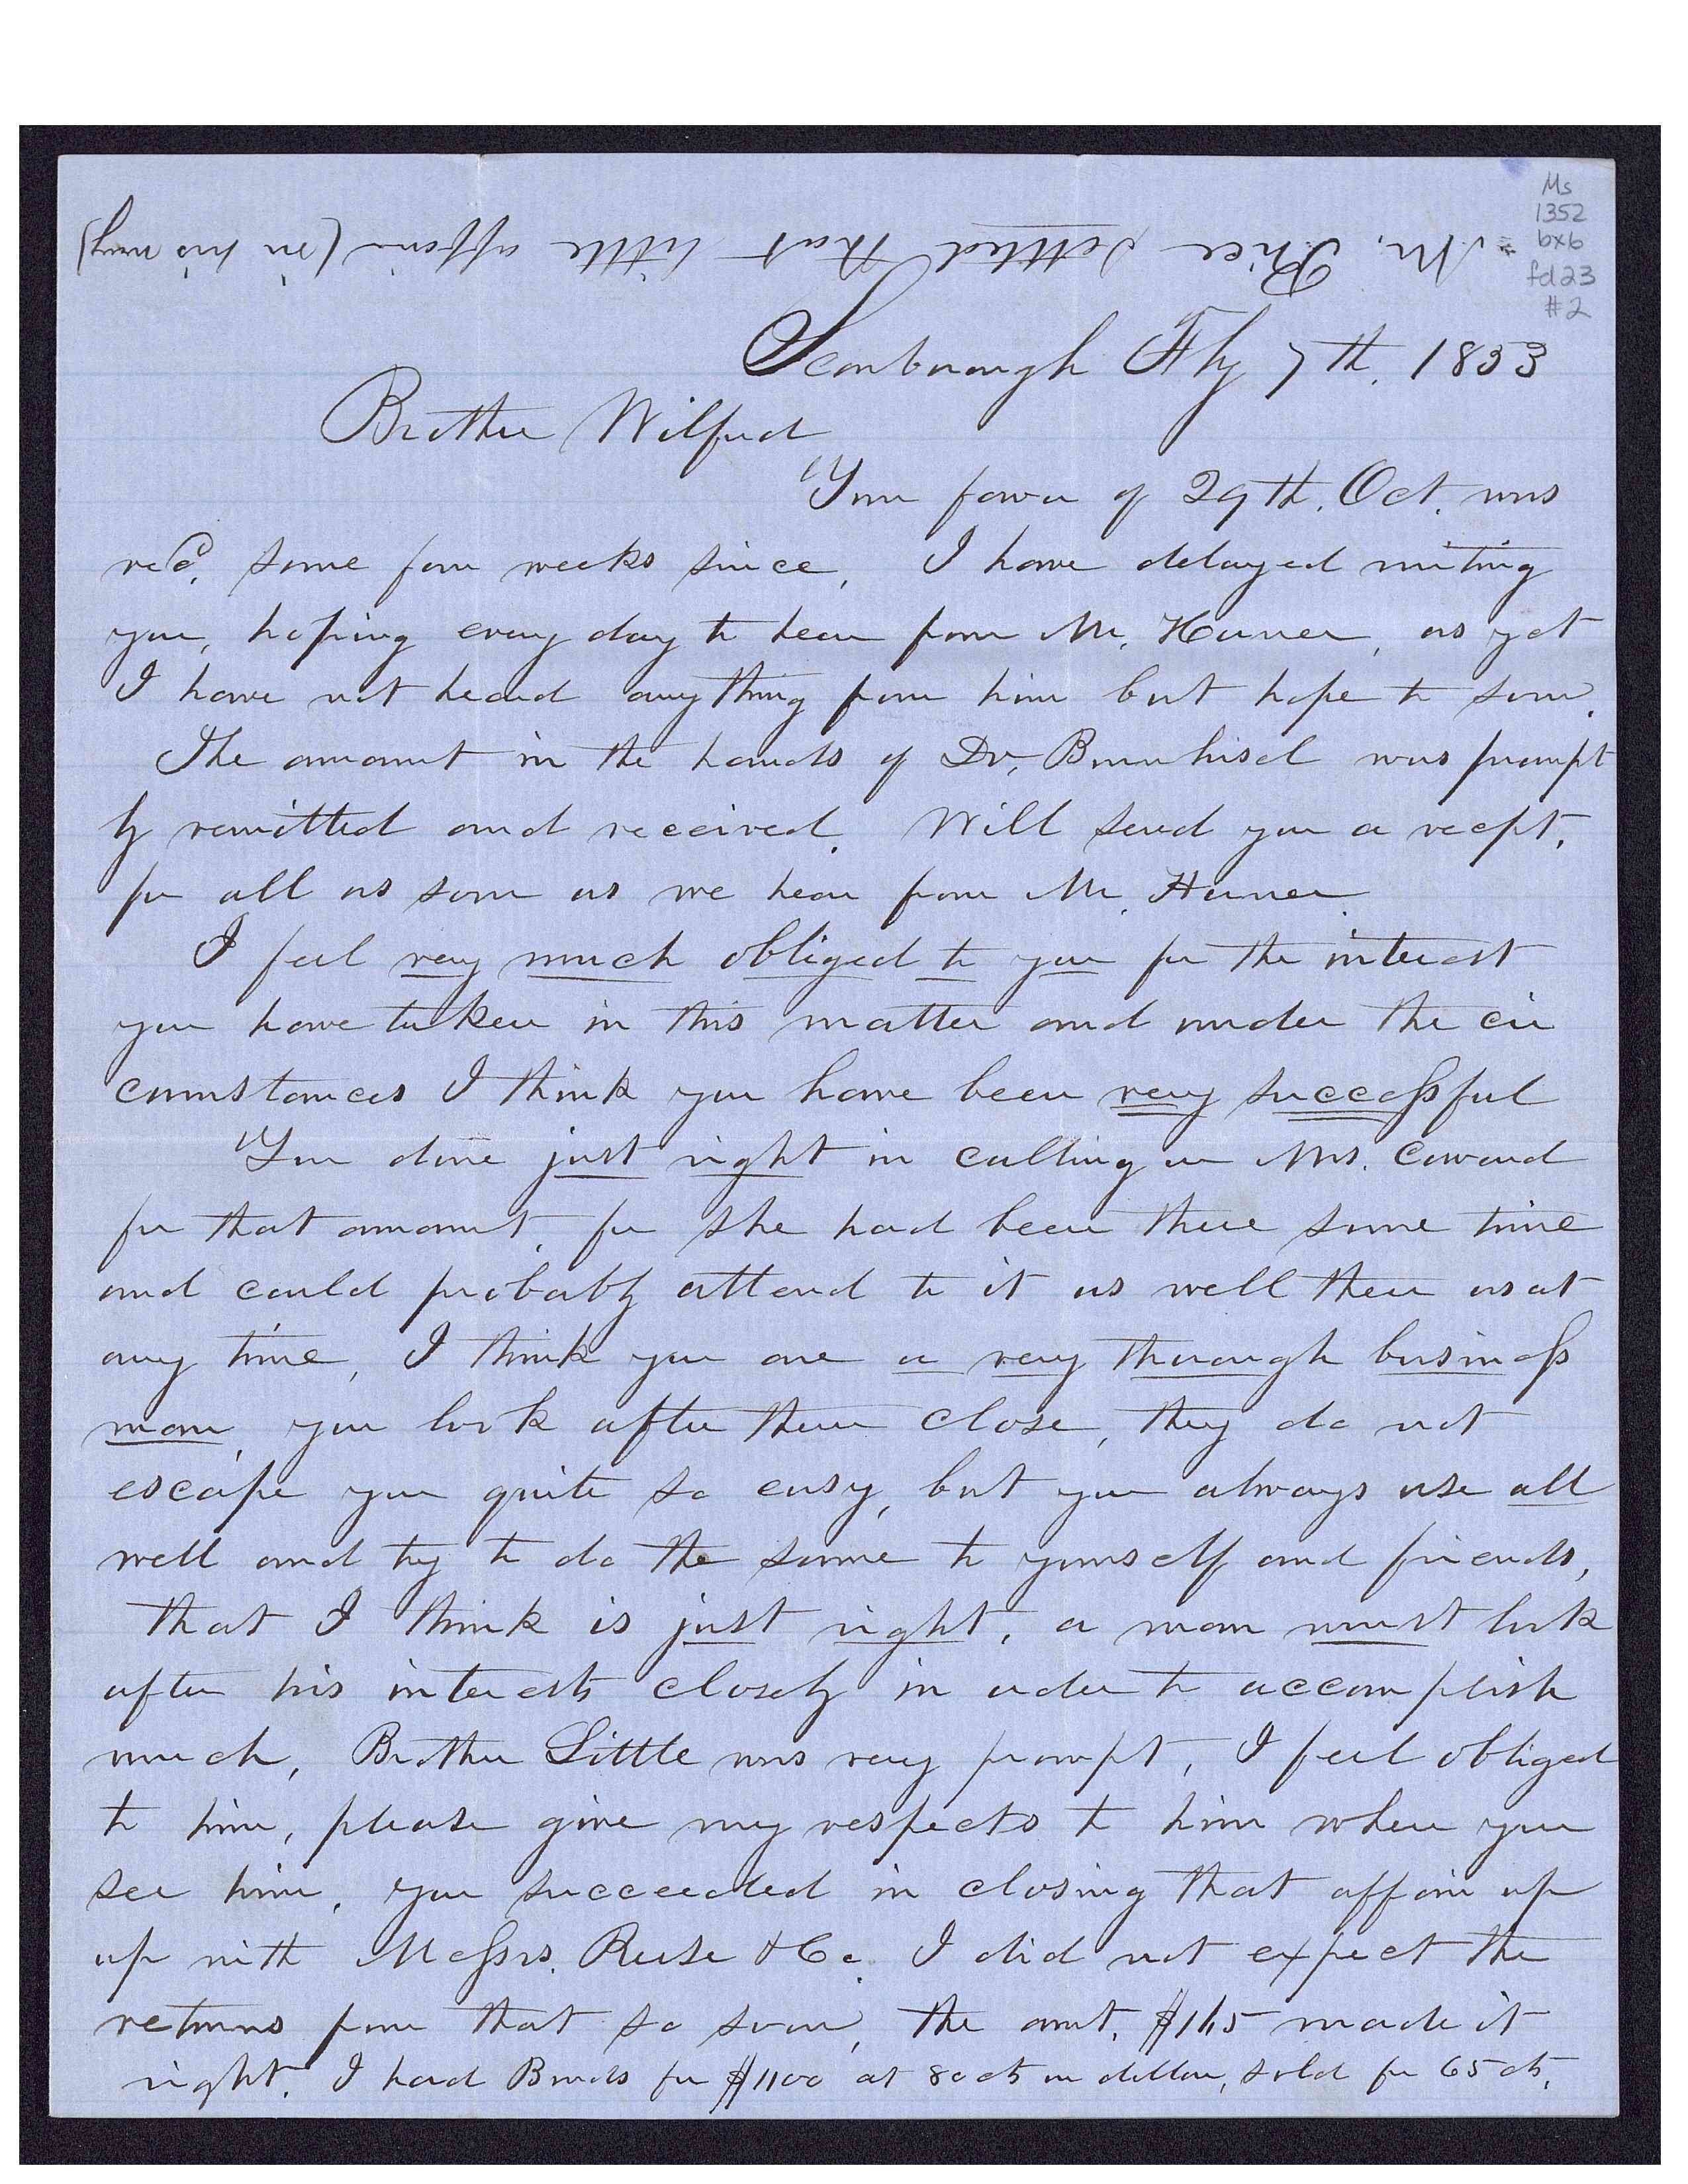 Ms
1352
bx6
fd23
#2
Mr. Price settled that little affair (in his way)
Scarborough Feby 7th. 1853
Brother Wilford
Your favor of 29th. Oct. was
recd. some four weeks since, I have delayed writing
you, hoping every day to hear from Mr. Horner, as yet
I have not heard anything from him but hope to soon.
The amount in the hands of Dr. Bernhisel was prompt
ly remitted and received. Will send you a recpt.
for all as soon as we hear from Mr. Horner.
I feel very much obliged to you for the interest
you have taken in this matter and under the cir
cumstances I think you have been very successful
You done just right in calling on Mrs. Coward
for that amount, for she had been there some time
and could probably attend to it as well then as at
any time, I think you are a very thorough business
man, you look after them close, they do not
escape you quite so easy, but you always use all
well and try to do the same to yourself and friends,
that I think is just right, a man must look
after his interests closely in order to accomplish
much, Brother Little was very prompt, I feel obliged
to him, please give my respects to him when you
see him, you succeeded in closing that affair up
up with Messrs. Reese & Co. I did not expect the
returns from that so soon, the amt. $165 made it
right. I had Bonds for $1100 at 80 cts on dollar, sold for 65 cts.